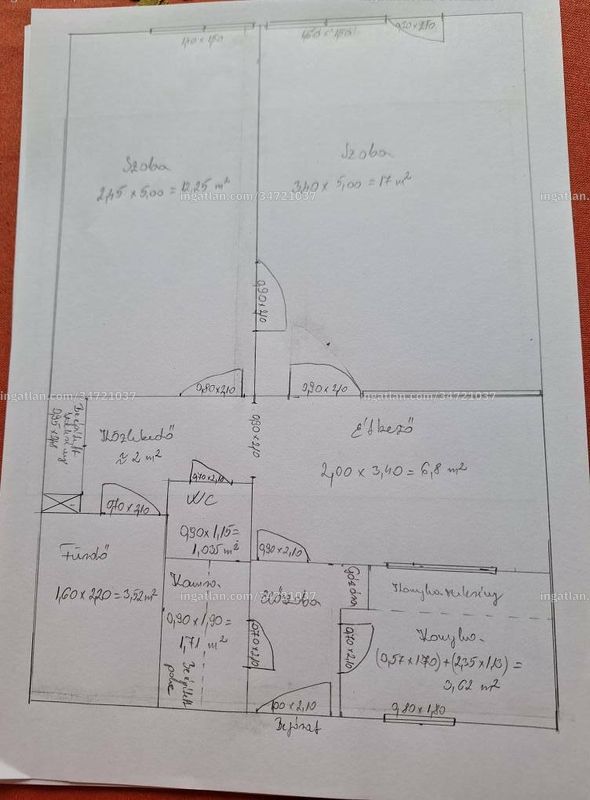 1,50 x 1,50
0,90 x 2,10
Szoba
2,45 x 5,00 = 12,25 m²
Szoba
3,40 x 5,00 = 17 m²
ingatlan.com/34721037
ingatlan.com/34721037
0,90 x 2,10
0,80 x 2,10
0,90 x 2,10
ingatlan.com/34721037
ingatlan.com/34721037
Beépített
szekrény
Közlekedő
≈ 2 m²
0,90 x 2,10
Étkező
2,00 x 3,40 = 6,8 m²
0,70 x 2,10
0,70 x 2,10
WC
0,90 x 1,15 =
1,035 m²
0,90 x 2,10
Fürdő
1,60 x 2,20 = 3,52 m²
Kamra
0,90 x 1,90 =
1,71 m²
Beépített
polc
Előszoba
0,70 x 2,10
Konyhaszekrény
0,70 x 2,10
Konyha
(0,57 x 1,70) + (2,35 x 1,13) =
3,62 m²
ingatlan.com/34721037
ingatlan.com/34721037
1,00 x 2,10
Bejárat
0,80 x 1,80